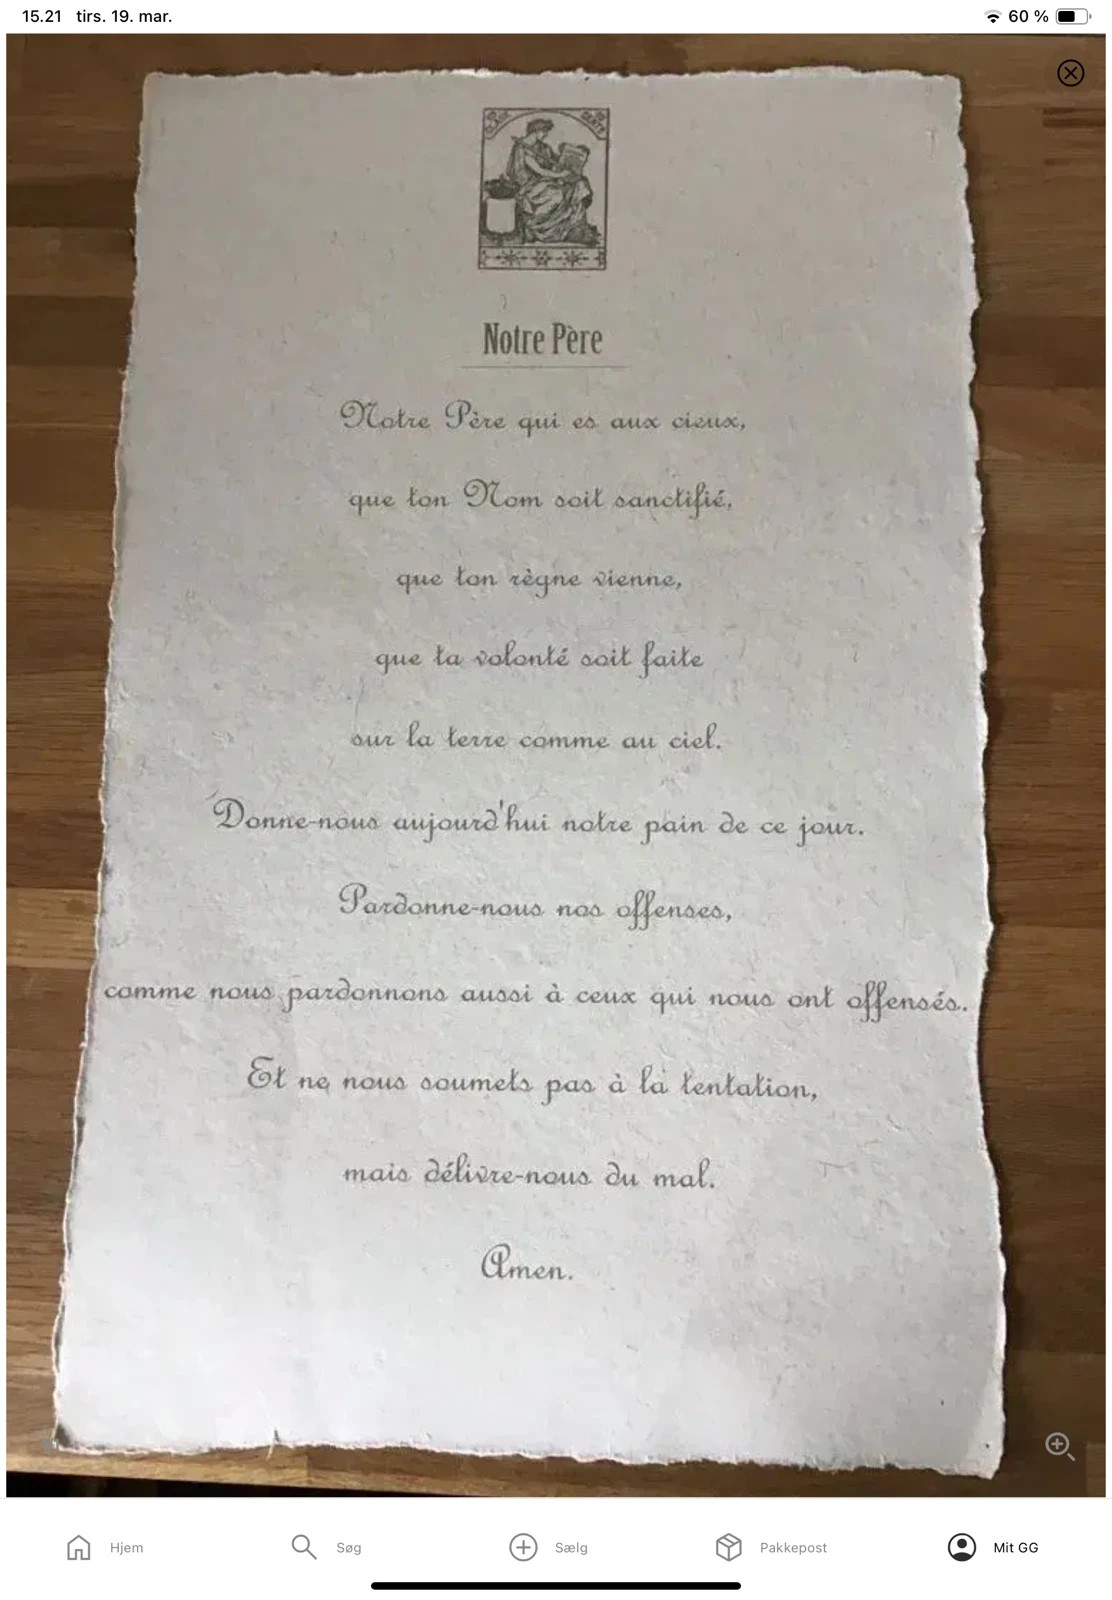 15.21 tirs. 19. mar.
60 %
Notre Père
Notre Père qui es aux cieux,
que ton Nom soit sanctifié,
que ton règne vienne,
que ta volonté soit faite
sur la terre comme au ciel.
Donne-nous aujourd'hui notre pain de ce jour.
Pardonne-nous nos offenses,
comme nous pardonnons aussi à ceux qui nous ont offensés..
Et ne nous soumets pas à la tentation,
mais délivre-nous du mal.
Amen.
Hjem
Søg
Sælg
Pakkepost
Mit GG